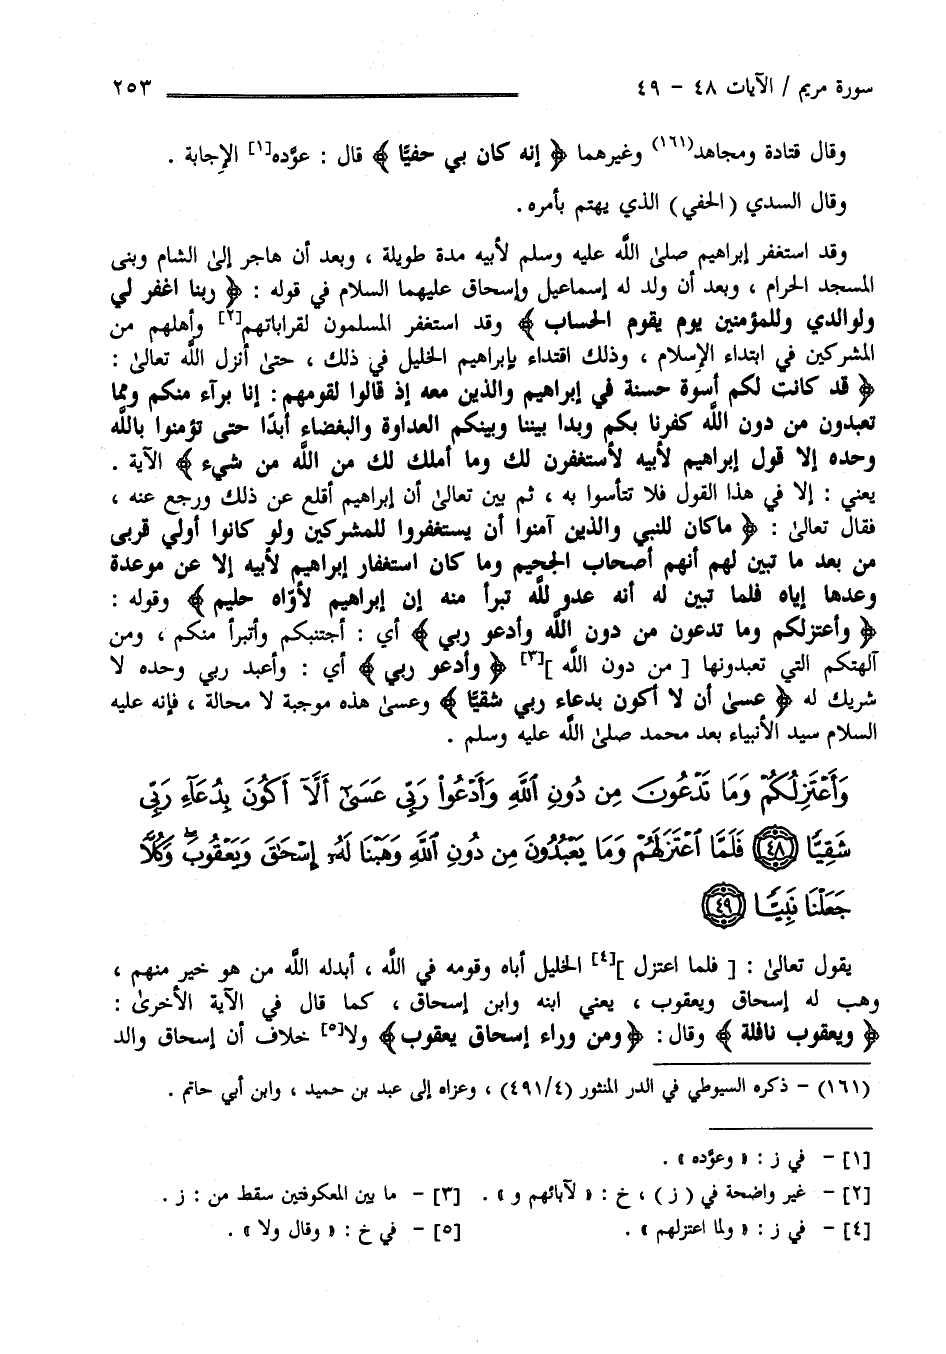 سورة مريم / الآيات ٤٨ - ٤٩ ٢٥٣
وقال قتادة ومجاهد(١٦١) وغيرهما ﴿ إنه كان بي حفيًّا ﴾ قال : عوَّده[١] الإجابة .
وقال السدي ( الحفي ) الذي يهتم بأمره .
وقد استغفر إبراهيم صلىٰ اللَّه عليه وسلم لأبيه مدة طويلة ، وبعد أن هاجر إلىٰ الشام وبنى
المسجد الحرام ، وبعد أن ولد له إسماعيل وإسحاق عليهما السلام في قوله : ﴿ ربنا اغفر لي
ولوالدي وللمؤمنين يوم يقوم الحساب ﴾ وقد استغفر المسلمون لقراباتهم[٢] وأهلهم من
المشركين في ابتداء الإسلام ، وذلك اقتداء بإبراهيم الخليل في ذلك ، حتىٰ أنزل اللَّه تعالىٰ :
﴿ قد كانت لكم أسوة حسنة في إبراهيم والذين معه إذ قالوا لقومهم : إنا برآء منكم ومما
تعبدون من دون اللَّه كفرنا بكم وبدا بيننا وبينكم العداوة والبغضاء أبدًا حتى تؤمنوا باللَّه
وحده إلا قول إبراهيم لأبيه لأستغفرن لك وما أملك لك من اللَّه من شيء ﴾ الآية .
يعني : إلا في هذا القول فلا تتأسوا به ، ثم بين تعالىٰ أن إبراهيم أقلع عن ذلك ورجع عنه ،
فقال تعالىٰ : ﴿ ماكان للنبي والذين آمنوا أن يستغفروا للمشركين ولو كانوا أولي قربى
من بعد ما تبين لهم أنهم أصحاب الجحيم وما كان استغفار إبراهيم لأبيه إلا عن موعدة
وعدها إياه فلما تبين له أنه عدو للَّه تبرأ منه إن إبراهيم لأوّاه حليم ﴾ وقوله :
﴿ وأعتزلكم وما تدعون من دون اللَّه وأدعو ربي ﴾ أي : أجتنبكم وأتبرأ منكم ، ومن
آلهتكم التي تعبدونها [ من دون اللَّه ][٣] ﴿ وأدعو ربي ﴾ أي : وأعبد ربي وحده لا
شريك له ﴿ عسىٰ أن لا أكون بدعاء ربي شقيًّا ﴾ وعسىٰ هذه موجبة لا محالة ، فإنه عليه
السلام سيد الأنبياء بعد محمد صلىٰ اللَّه عليه وسلم .
وَأَعْتَزِلُكُمْ وَمَا تَدْعُونَ مِن دُونِ ٱللَّهِ وَأَدْعُواْ رَبِّى عَسَىٰٓ أَلَّآ أَكُونَ بِدُعَآءِ رَبِّى
شَقِيًّا ٤٨ فَلَمَّا ٱعْتَزَلَهُمْ وَمَا يَعْبُدُونَ مِن دُونِ ٱللَّهِ وَهَبْنَا لَهُۥٓ إِسْحَٰقَ وَيَعْقُوبَ ۖ وَكُلًّا
جَعَلْنَا نَبِيًّا ٤٩
يقول تعالىٰ : [ فلما اعتزل ][٤] الخليل أباه وقومه في اللَّه ، أبدله اللَّه من هو خير منهم ،
وهب له إسحاق ويعقوب ، يعني ابنه وابن إسحاق ، كما قال في الآية الأخرىٰ :
﴿ ويعقوب نافلة ﴾ وقال : ﴿ ومن وراء إسحاق يعقوب ﴾ ولا[٥] خلاف أن إسحاق والد
(١٦١) - ذكره السيوطي في الدر المنثور (٤٩١/٤) ، وعزاه إلى عبد بن حميد ، وابن أبي حاتم .
[١] - في ز : « وعوَّده » .
[٢] - غير واضحة في ( ز ) ، خ : « لآبائهم و » . [٣] - ما بين المعكوفتين سقط من : ز .
[٤] - في ز : « ولما اعتزلهم » . [٥] - في خ : « وقال ولا » .